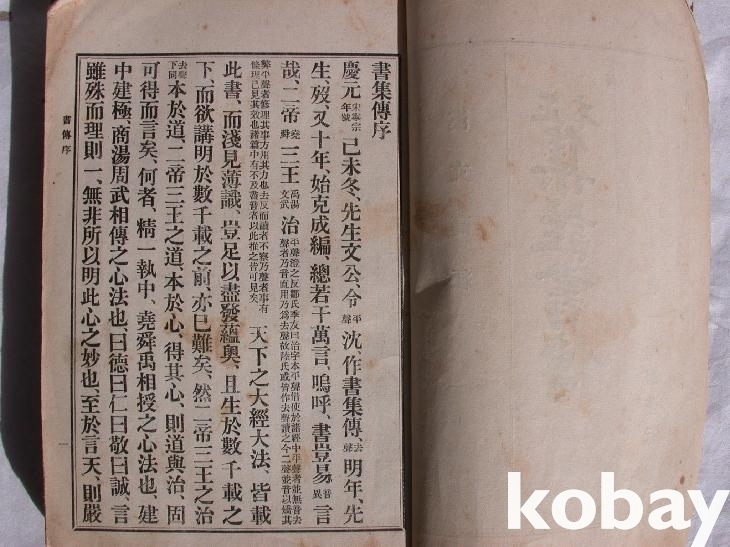 書集傳序
慶元宋寧宗年號己未冬、先生文公、令平聲沈、作書集傳、去聲明年、先
生、歿、又十年、始克成編、總若干萬言、嗚呼、書豈易音異言
哉、二帝堯舜三王禹湯文武治
天下之大經大法、皆載
此書、而淺見薄識、豈足以盡發蘊奧、且生於數千載之
下、而欲講明於數千載之前、亦已難矣、然二帝三王之治
去聲下同本於道、二帝三王之道、本於心、得其心、則道與治、固
可得而言矣、何者、精一執中、堯舜禹相授之心法也、建
中建極、商湯周武相傳之心法也、曰德曰仁曰敬曰誠、言
雖殊而理則一、無非所以明此心之妙也、至於言天、則嚴
書傳序
一
kobay